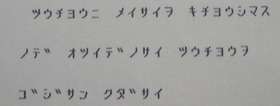 ツウチヨウニ メイサイヲ キチヨウシマス
ノデ オツイデノサイ ツウチヨウヲ
ゴジサン クダサイ